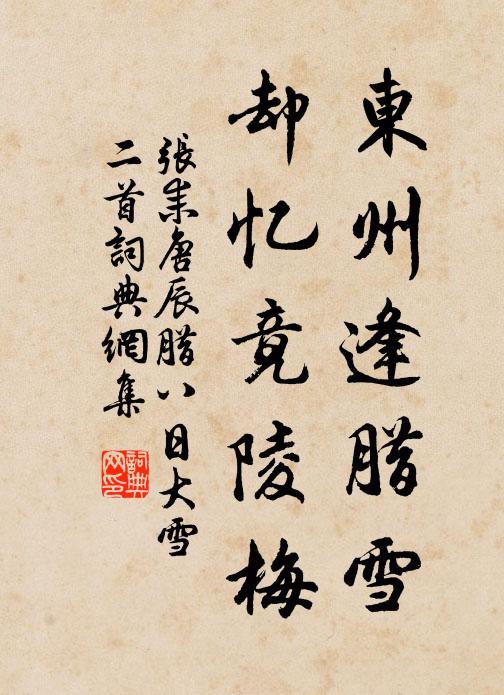 東州逢腊雪
却忆竟陵梅
張耒唐辰腊八日大雪
二首詞典網集
詞典网印